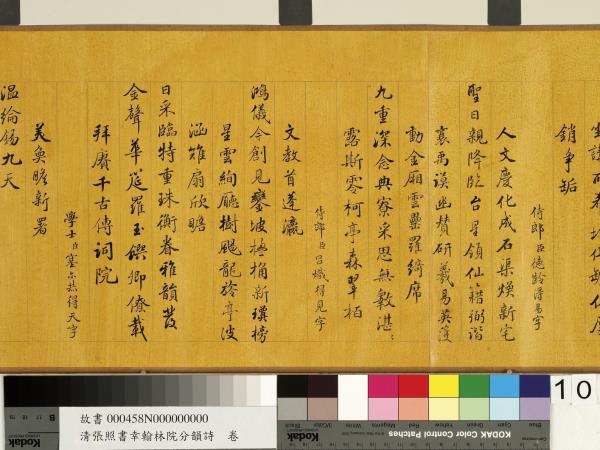 銷爭垢
侍郎臣德齡得易字
人文慶化成石渠煥新宅
聖日親降臨台星領仙籍弼諧
襄禹謨幽贊研羲易英莖
動金廂雲罍羅綺席
九重深念典寮采思無斁湛〻
露斯零柯亭森翠柏
侍郎臣呂熾得見字
文教首蓬瀛
鴻儀今創見鑾坡桷新璜榜
星雲絢廳樹颺龍旂亭波
涵雉扇欣瞻
日采臨特重珠衡眷雅韻發
金聲華筵羅玉饌卿僚載
拜賡千古傳詞院
學士臣塞尔赫得天字
美奐瞻新署
溫綸錫九天
故書 000458N000000000
清張照書幸翰林院分韻詩 卷
Kodak
KODAK Color Control Patches
Blue
Cyan
Green
Yellow
Red
Magenta
White
3/Color
Black
10